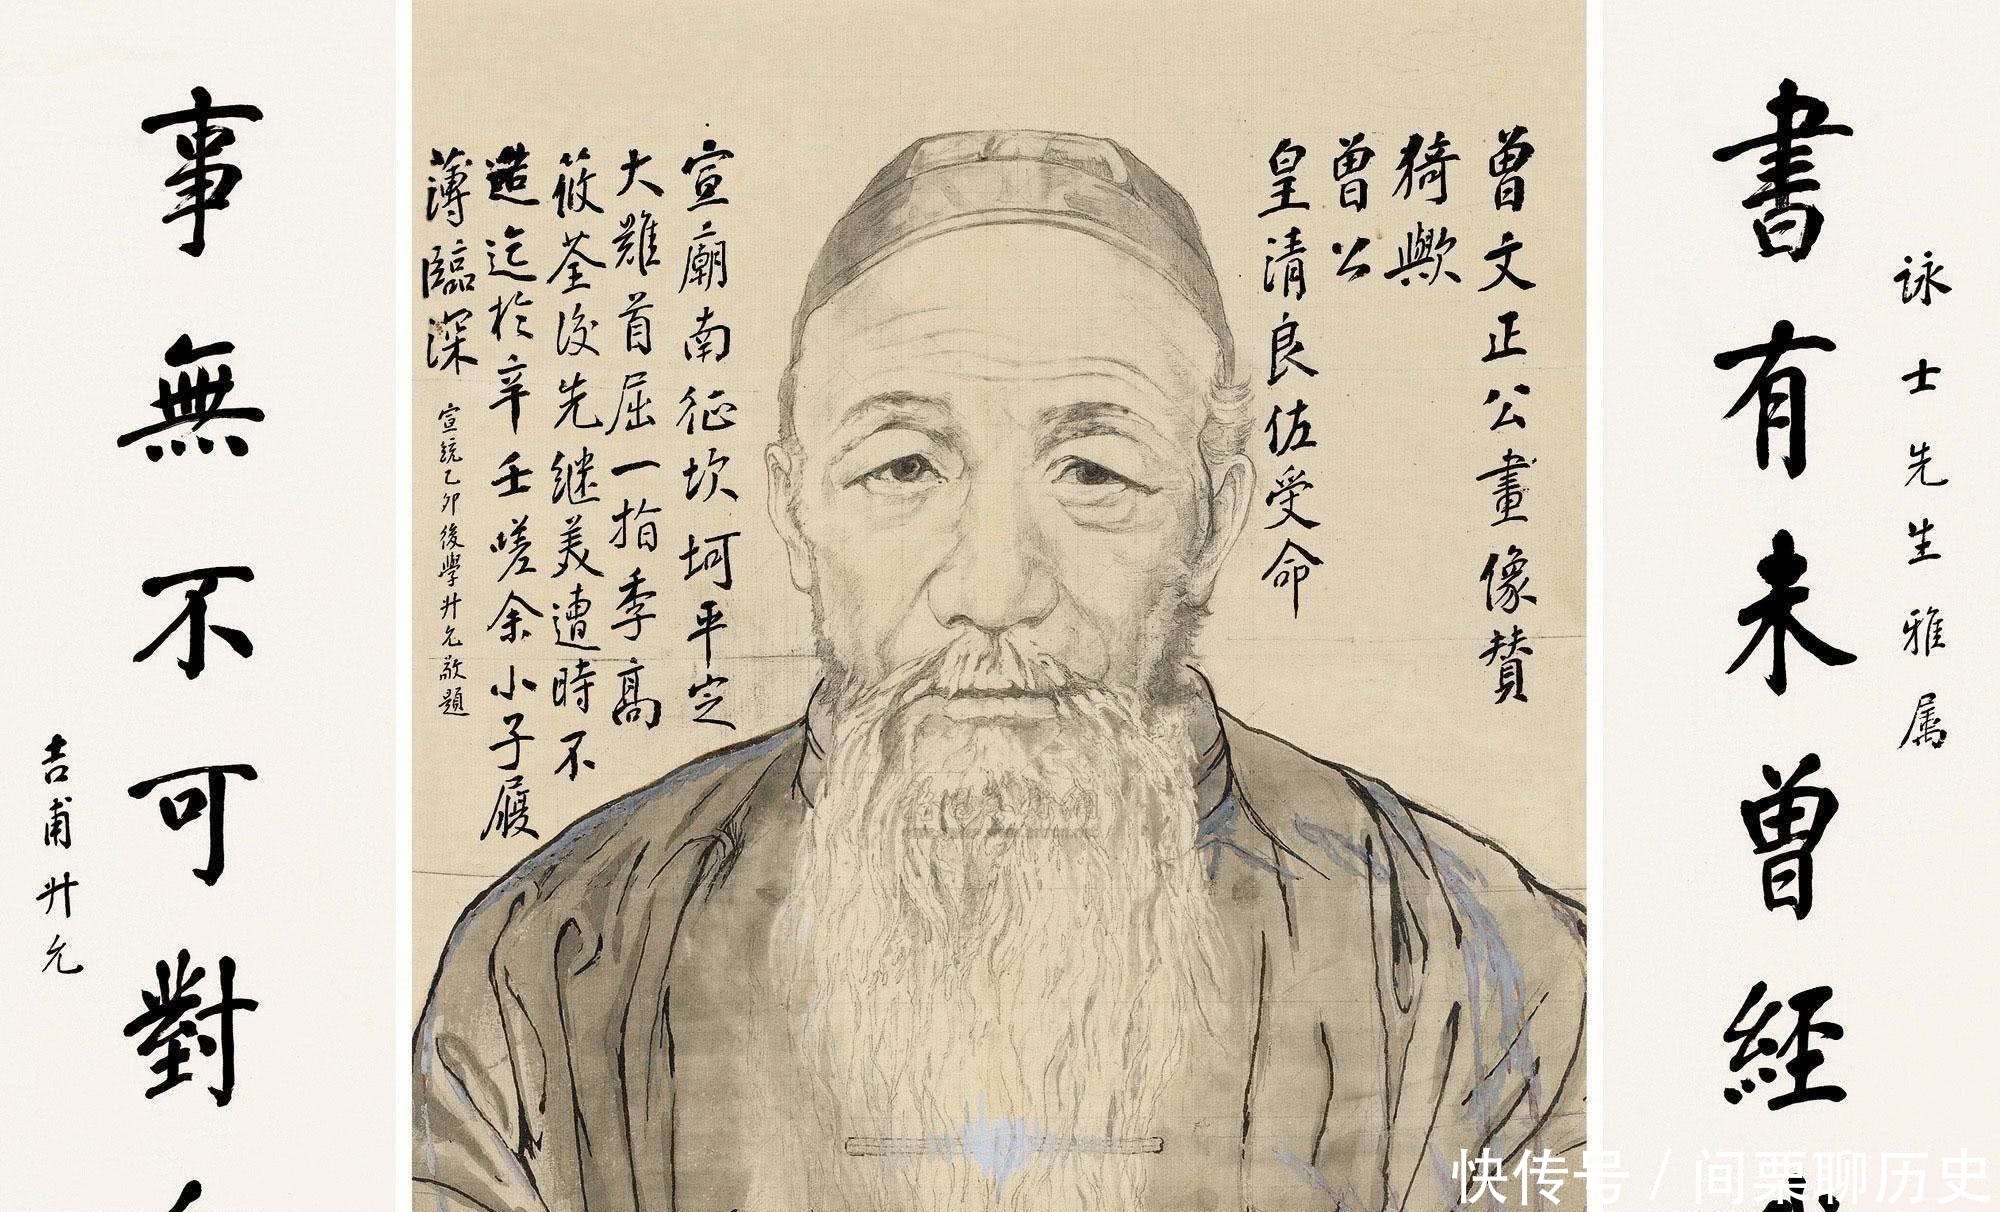 詠士先生雅属
書有未曾經
曾文正公畫像賛
猗歟
曾公
皇清良佐受命
宣廟南征坎坷平定
大難首屈一指季高
莜荃後先継美遭時不
造迄於辛壬嗟余小子履
薄臨深
宣統乙卯後學升允敬題
事無不可對
吉甫升允
快传号 / 间栗聊历史